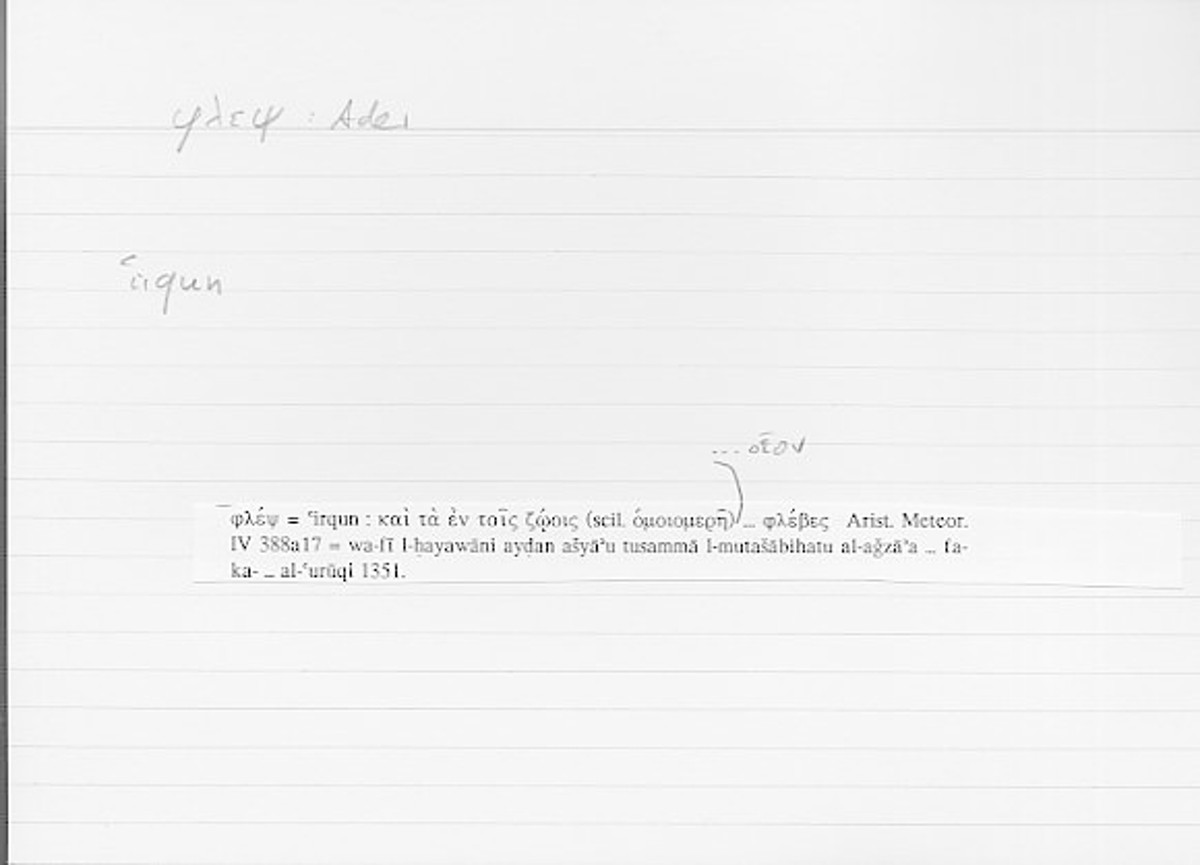 φλεψ : Ader
ʿirqun
... οἷον
φλέψ = ʿirqun : καὶ τὰ ἐν τοῖς ζῴοις (scil. ὁμοιομερῆ) ... φλέβες Arist. Meteor.
IV 388a17 = wa-fī l-ḥayawāni ayḍan ašyāʾu tusammā l-mutašābihatu al-aǧzāʾa ... fa-
ka- ... al-ʿurūqi 1351.